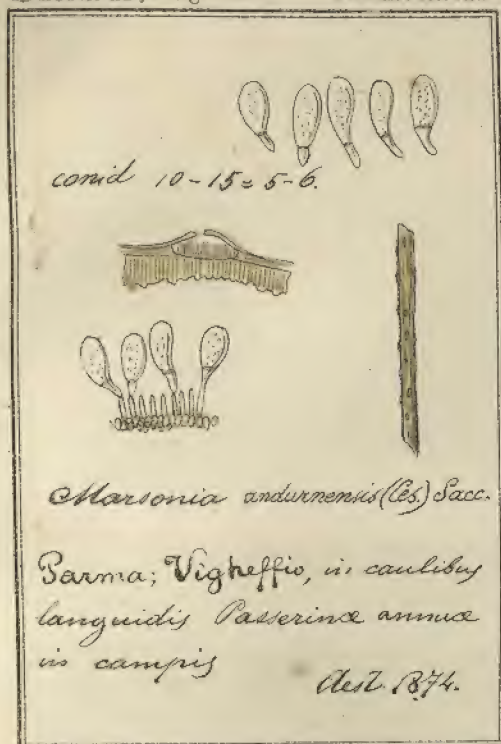 conid 10-15=5-6.
Marsonia andurnensis (Ces.) Sacc.
Parma; Vigheffio, in caulibus
languidis Passerinæ annuæ
in campis
Aest. 1874.